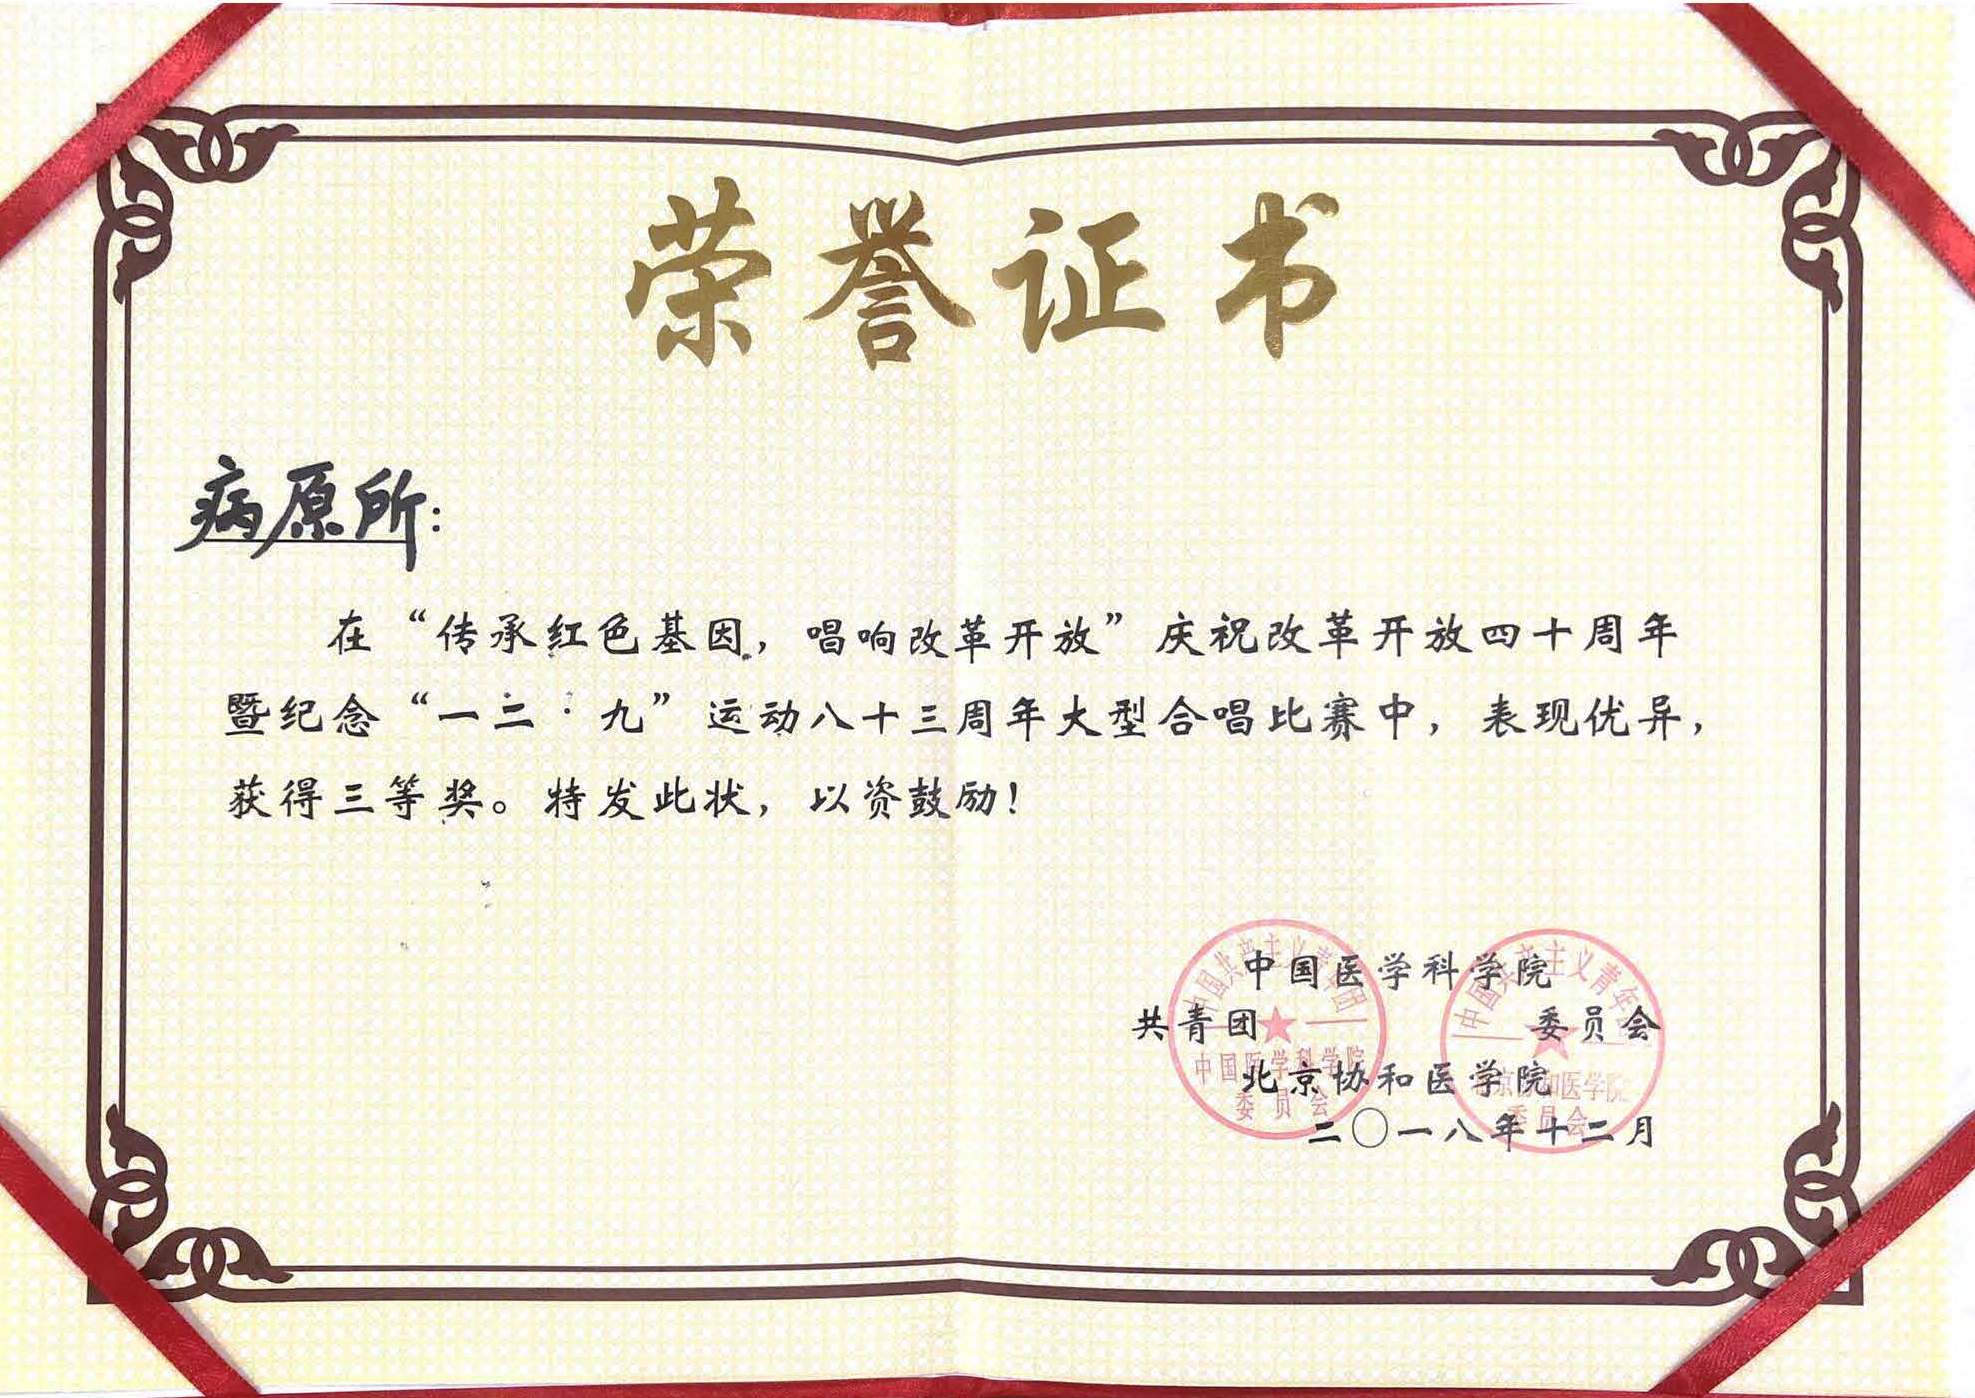 荣誉证书
病原所:
在“传承红色基因，唱响改革开放”庆祝改革开放四十周年
暨纪念“一二·九”运动八十三周年大型合唱比赛中，表现优异，
获得三等奖。特发此状，以资鼓励！
中国医学科学院
共青团 委员会
北京协和医学院
二〇一八年十二月
中国共产主义青年团
中国医学科学院
委员会
中国共产主义青年团
北京协和医学院
委员会